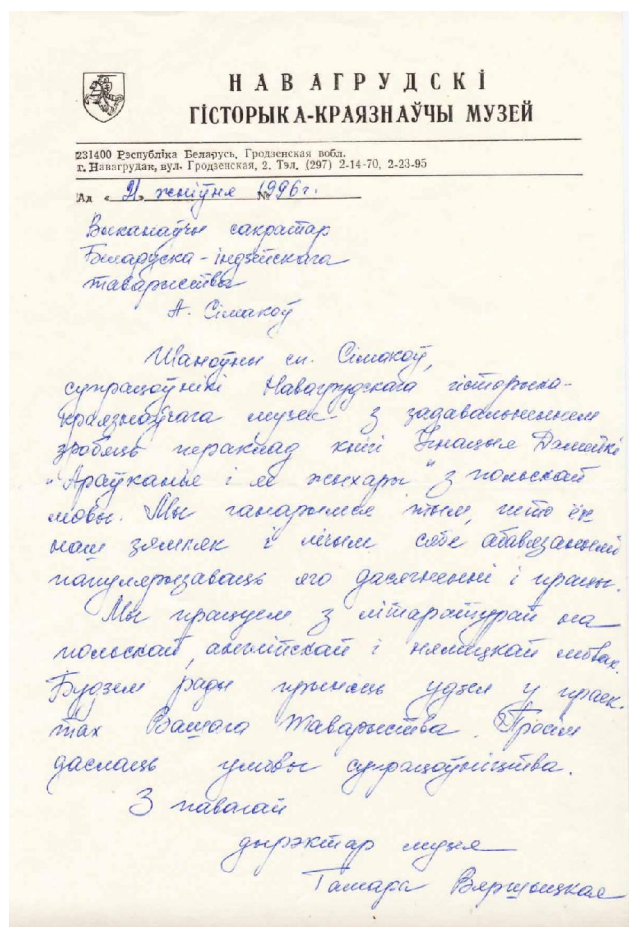 НАВАГРУДСКІ
ГІСТОРЫКА-КРАЯЗНАЎЧЫ МУЗЕЙ
231400 Рэспубліка Беларусь, Гродзенская вобл.
г. Навагрудак, вул. Гродзенская, 2. Тэл. (297) 2-14-70, 2-23-95
Ад «21» жніўня № 1996 г.
Выканаўчы сакратар
Беларуска-індзейскага
таварыства
А. Сімакоў
Шаноўны сп. Сімакоў,
супрацоўнікі Навагрудскага гісторыка-
краязнаўчага музея з задавальненнем
зробяць пераклад кнігі Ігнацыя Дамейкі
"Араўканье і яе жыхары" з польскай
мовы. Мы ганарымся тым, што ён
наш зямляк і лічым сябе абавязанымі
папулярызаваць яго дасягненні і працы.
Мы працуем з літаратурай на
польскай, англійскай і нямецкай мовах.
Будзем рады прыняць удзел у праек-
тах Вашага таварыства. Просім
даслаць умовы супрацоўніцтва.
З павагай
дырэктар музея
Тамара Вяршыцкая